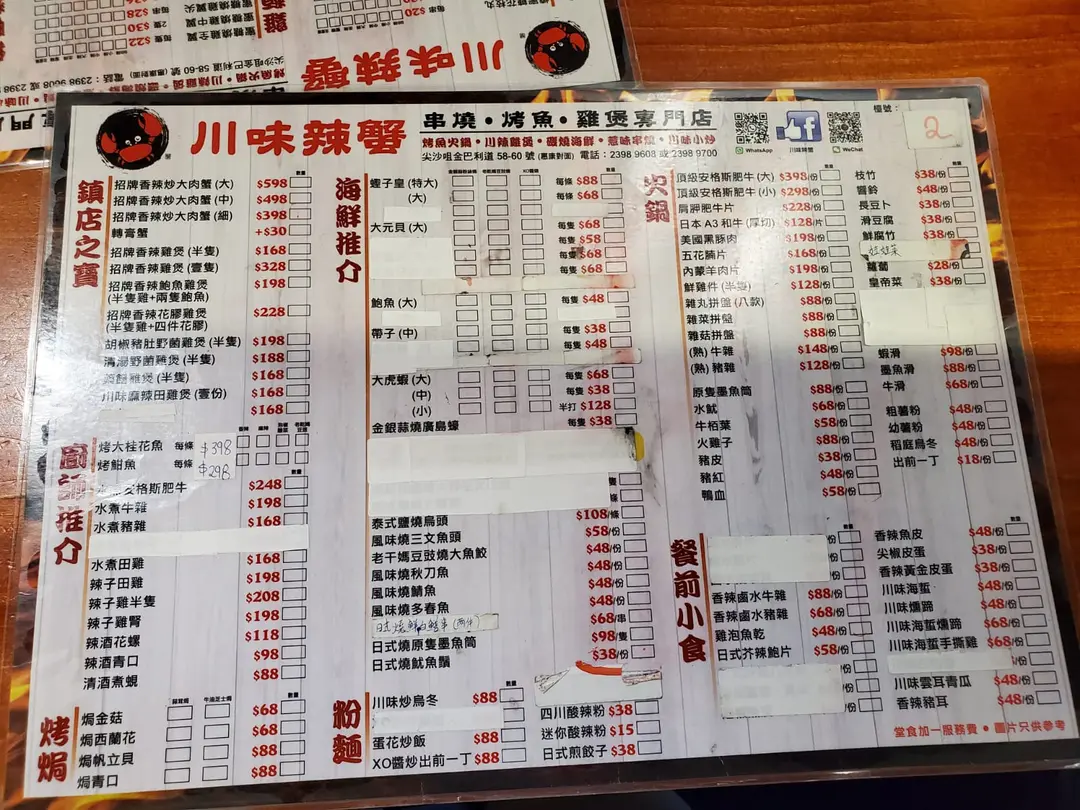 川味辣蟹
串燒・烤魚・雞煲專門店
烤魚火鍋・川辣雞煲・礎燒海鮮・惹味串燒・川味小炒
尖沙咀金巴利道 58-60 號 (惠康對面) 電話:2398 9608 或 2398 9700
WhatsApp
川味辣蟹
WeChat
檯號:
2
鎮店之寶
數量
招牌香辣炒大肉蟹 (大) $598
招牌香辣炒大肉蟹 (中) $498
招牌香辣炒大肉蟹 (細) $398
轉膏蟹 +$30
招牌香辣雞煲 (半隻) $168
招牌香辣雞煲 (壹隻) $328
招牌香辣鮑魚雞煲 $198
(半隻雞+兩隻鮑魚)
招牌香辣花膠雞煲 $228
(半隻雞+四件花膠)
胡椒豬肚野菌雞煲 (半隻) $198
清湯野菌雞煲 (半隻) $188
雞煲 (半隻) $168
川味麻辣田雞煲 (壹份) $168
$168
廚師推介
烤大桂花魚 每條 $398
烤鮰魚 每條 $298
安格斯肥牛 $248
水煮牛雜 $198
水煮豬雜 $168
水煮田雞 $168
辣子田雞 $198
辣子雞半隻 $208
辣子雞腎 $198
辣酒花螺 $118
辣酒青口 $98
清酒煮蜆 $88
烤焗
蒜蓉焗
牛油芝士焗
數量
焗金菇 $68
焗西蘭花 $68
焗帆立貝 $88
焗青口 $88
海鮮推介
XO醬
數量
蟶子皇 (特大) 每條 $88
(大) 每條 $68
大元貝 (大) 每隻 $68
每隻 $58
每隻 $68
每隻 $68
鮑魚 (大) 每隻 $48
帶子 (中) 每隻 $38
每隻 $48
大虎蝦 (大) 每隻 $68
(中) 每隻 $38
(小) 半打 $128
金銀蒜燒廣島蠔 $38
泰式鹽燒烏頭 $108/條
風味燒三文魚頭 $58/份
老干媽豆豉燒大魚鮫 $48/份
風味燒秋刀魚 $48/份
風味燒鯖魚 $48/份
風味燒多春魚 $48/份
$68/串
日式燒原隻墨魚筒 $98/隻
日式燒魷魚鬚 $38/份
粉麵
數量
川味炒烏冬 $88
蛋花炒飯 $88
XO醬炒出前一丁 $88
四川酸辣粉 $38
迷你酸辣粉 $15
日式煎餃子 $38
火鍋
數量
頂級安格斯肥牛 (大) $398/份
頂級安格斯肥牛 (小) $298/份
肩胛肥牛片 $228/份
日本 A3 和牛 (厚切) $128/份
美國黑豚肉 $198/份
五花腩片 $168/份
內蒙羊肉片 $168/份
鮮雞件 (半隻) $128/份
雜丸拼盤 (八款) $88/份
雜菜拼盤 $88/份
雜菇拼盤 $88/份
(熟) 牛雜 $148/份
(熟) 豬雜 $128/份
原隻墨魚筒 $88/份
水魷 $68/份
牛栢葉 $58/份
火雞子 $88/份
豬皮 $38/份
豬紅 $48/份
鴨血 $58/份
枝竹 $38/份
響鈴 $48/份
長豆卜 $38/份
滑豆腐 $38/份
鮮腐竹 $38/份
娃娃菜
蘿蔔 $28/份
皇帝菜 $38/份
蝦滑 $98/份
墨魚滑 $88/份
牛滑 $68/份
粗薯粉 $48/份
幼薯粉 $48/份
稻庭烏冬 $48/份
出前一丁 $18/份
餐前小食
數量
香辣鹵水牛雜 $88/份
香辣鹵水豬雜 $68/份
雞泡魚乾 $48/份
日式芥辣鮑片 $58/份
香辣魚皮 $48/份
尖椒皮蛋 $38/份
香辣黃金皮蛋 $38/份
川味海蜇 $48/份
川味燻蹄 $48/份
川味海蜇燻蹄 $68/份
川味海蜇手撕雞 $68/份
川味雲耳青瓜 $48/份
香辣豬耳 $48/份
堂食加一服務費・圖片只供參考